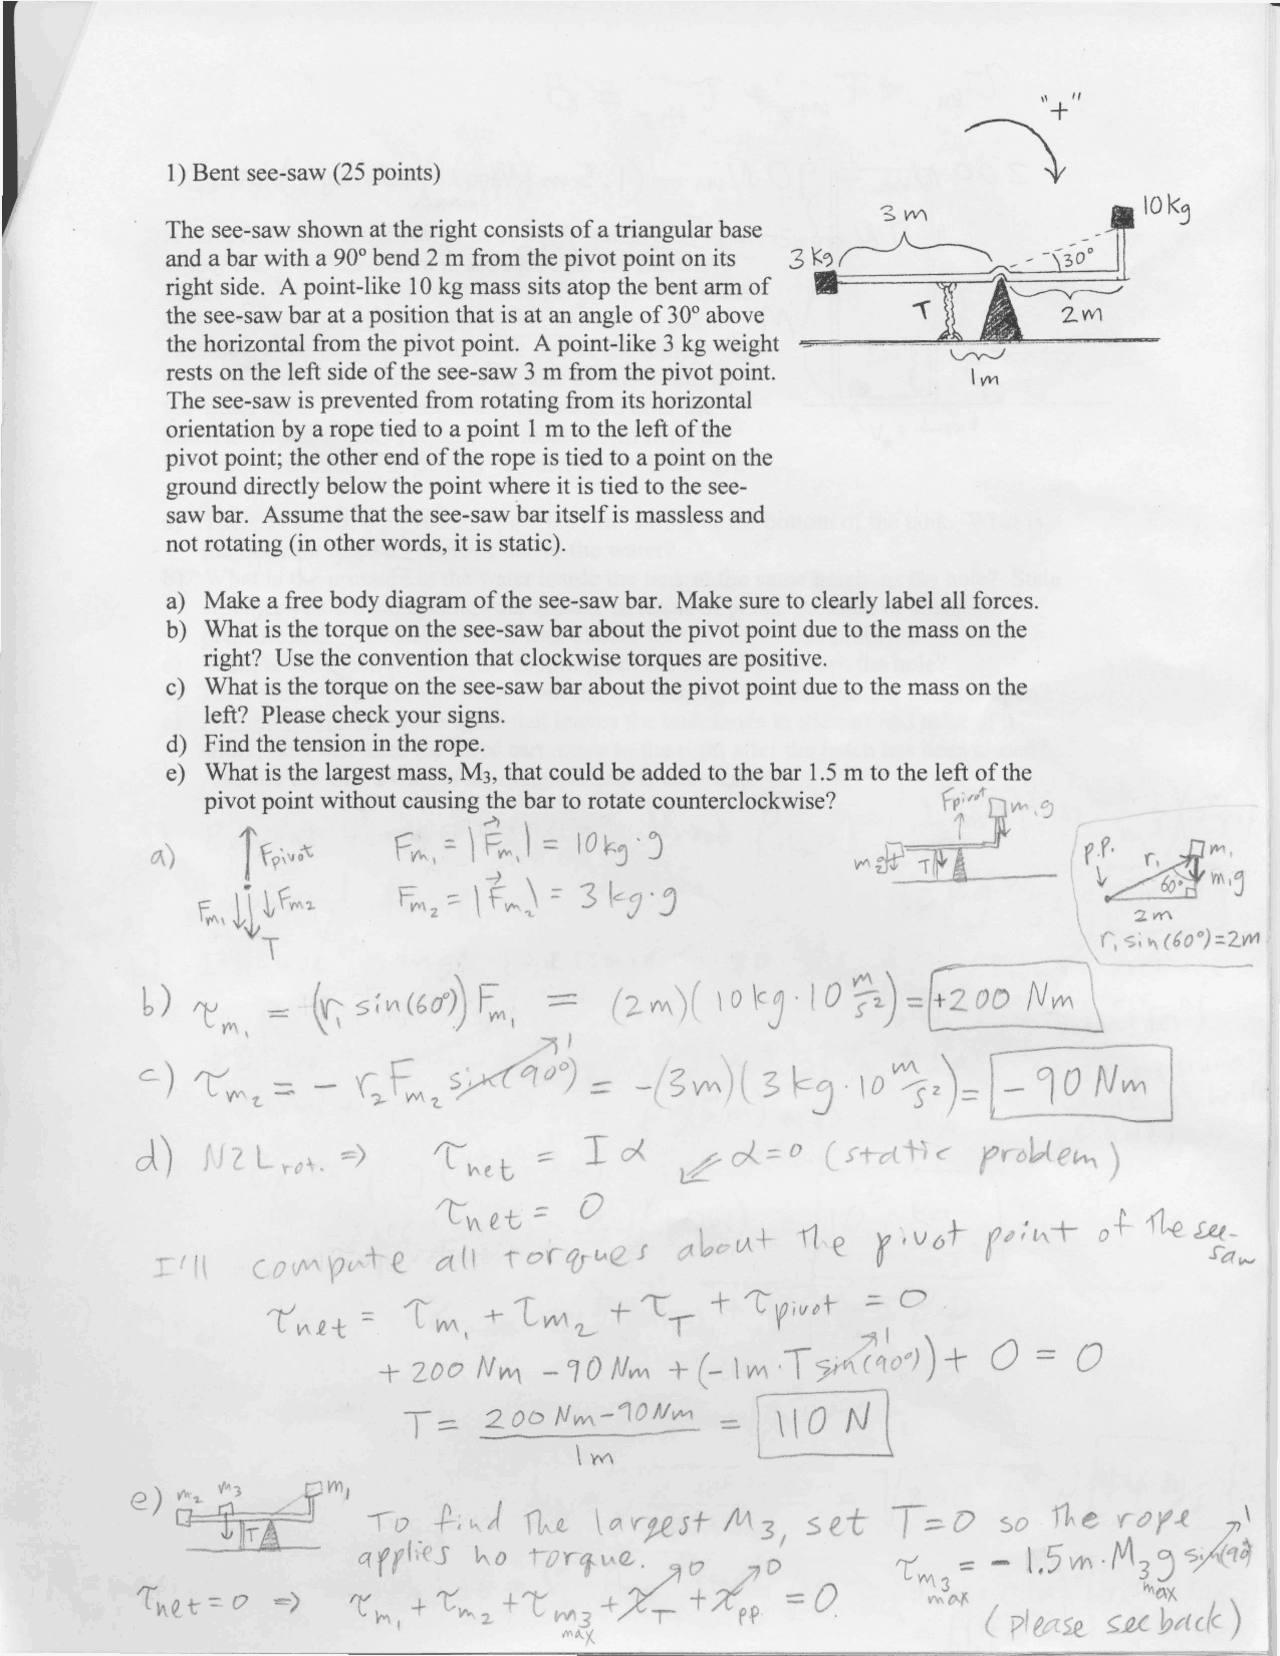 "+"
1) Bent see-saw (25 points)
10kg
3 m
3 kg
30°
T
2m
1m
The see-saw shown at the right consists of a triangular base
and a bar with a 90° bend 2 m from the pivot point on its
right side. A point-like 10 kg mass sits atop the bent arm of
the see-saw bar at a position that is at an angle of 30° above
the horizontal from the pivot point. A point-like 3 kg weight
rests on the left side of the see-saw 3 m from the pivot point.
The see-saw is prevented from rotating from its horizontal
orientation by a rope tied to a point 1 m to the left of the
pivot point; the other end of the rope is tied to a point on the
ground directly below the point where it is tied to the see-
saw bar. Assume that the see-saw bar itself is massless and
not rotating (in other words, it is static).
a) Make a free body diagram of the see-saw bar. Make sure to clearly label all forces.
b) What is the torque on the see-saw bar about the pivot point due to the mass on the
right? Use the convention that clockwise torques are positive.
c) What is the torque on the see-saw bar about the pivot point due to the mass on the
left? Please check your signs.
d) Find the tension in the rope.
e) What is the largest mass, M₃, that could be added to the bar 1.5 m to the left of the
pivot point without causing the bar to rotate counterclockwise?
a) Fpivot Fm₁ = |F⃗m₁| = 10kg·g
Fm₁ Fm₂ Fm₂ = |F⃗m₂| = 3 kg·g
T
Fpivot m₁g
m₂g T
P.P. r₁ m₁
60° m₁g
2m
r₁ sin(60°)=2m
b) τm₁ = (r₁ sin(60°)) Fm₁ = (2m)(10kg·10 m/s²) = +200 Nm
c) τm₂ = - r₂Fm₂ sin(90°) 1 = -(3m)(3kg·10 m/s²) = -90Nm
d) N2L rot. => τnet = Iα α=0 (static problem)
τnet = 0
I'll compute all torques about the pivot point of the see-
saw
τnet = τm₁ + τm₂ + τT + τpivot = 0
+200 Nm - 90 Nm + (-1m·T sin(90°)) 1 + 0 = 0
T = 200 Nm-90Nm / 1m = 110 N
e) m₂ m₃ m₁
T
To find the largest M₃, set T=0 so the rope
applies no torque. τm₃ max = - 1.5m·M₃ max g sin(90°) 1
τnet = 0 => τm₁ + τm₂ + τm₃ max + τT 0 + τpp. 0 = 0
(please see back)